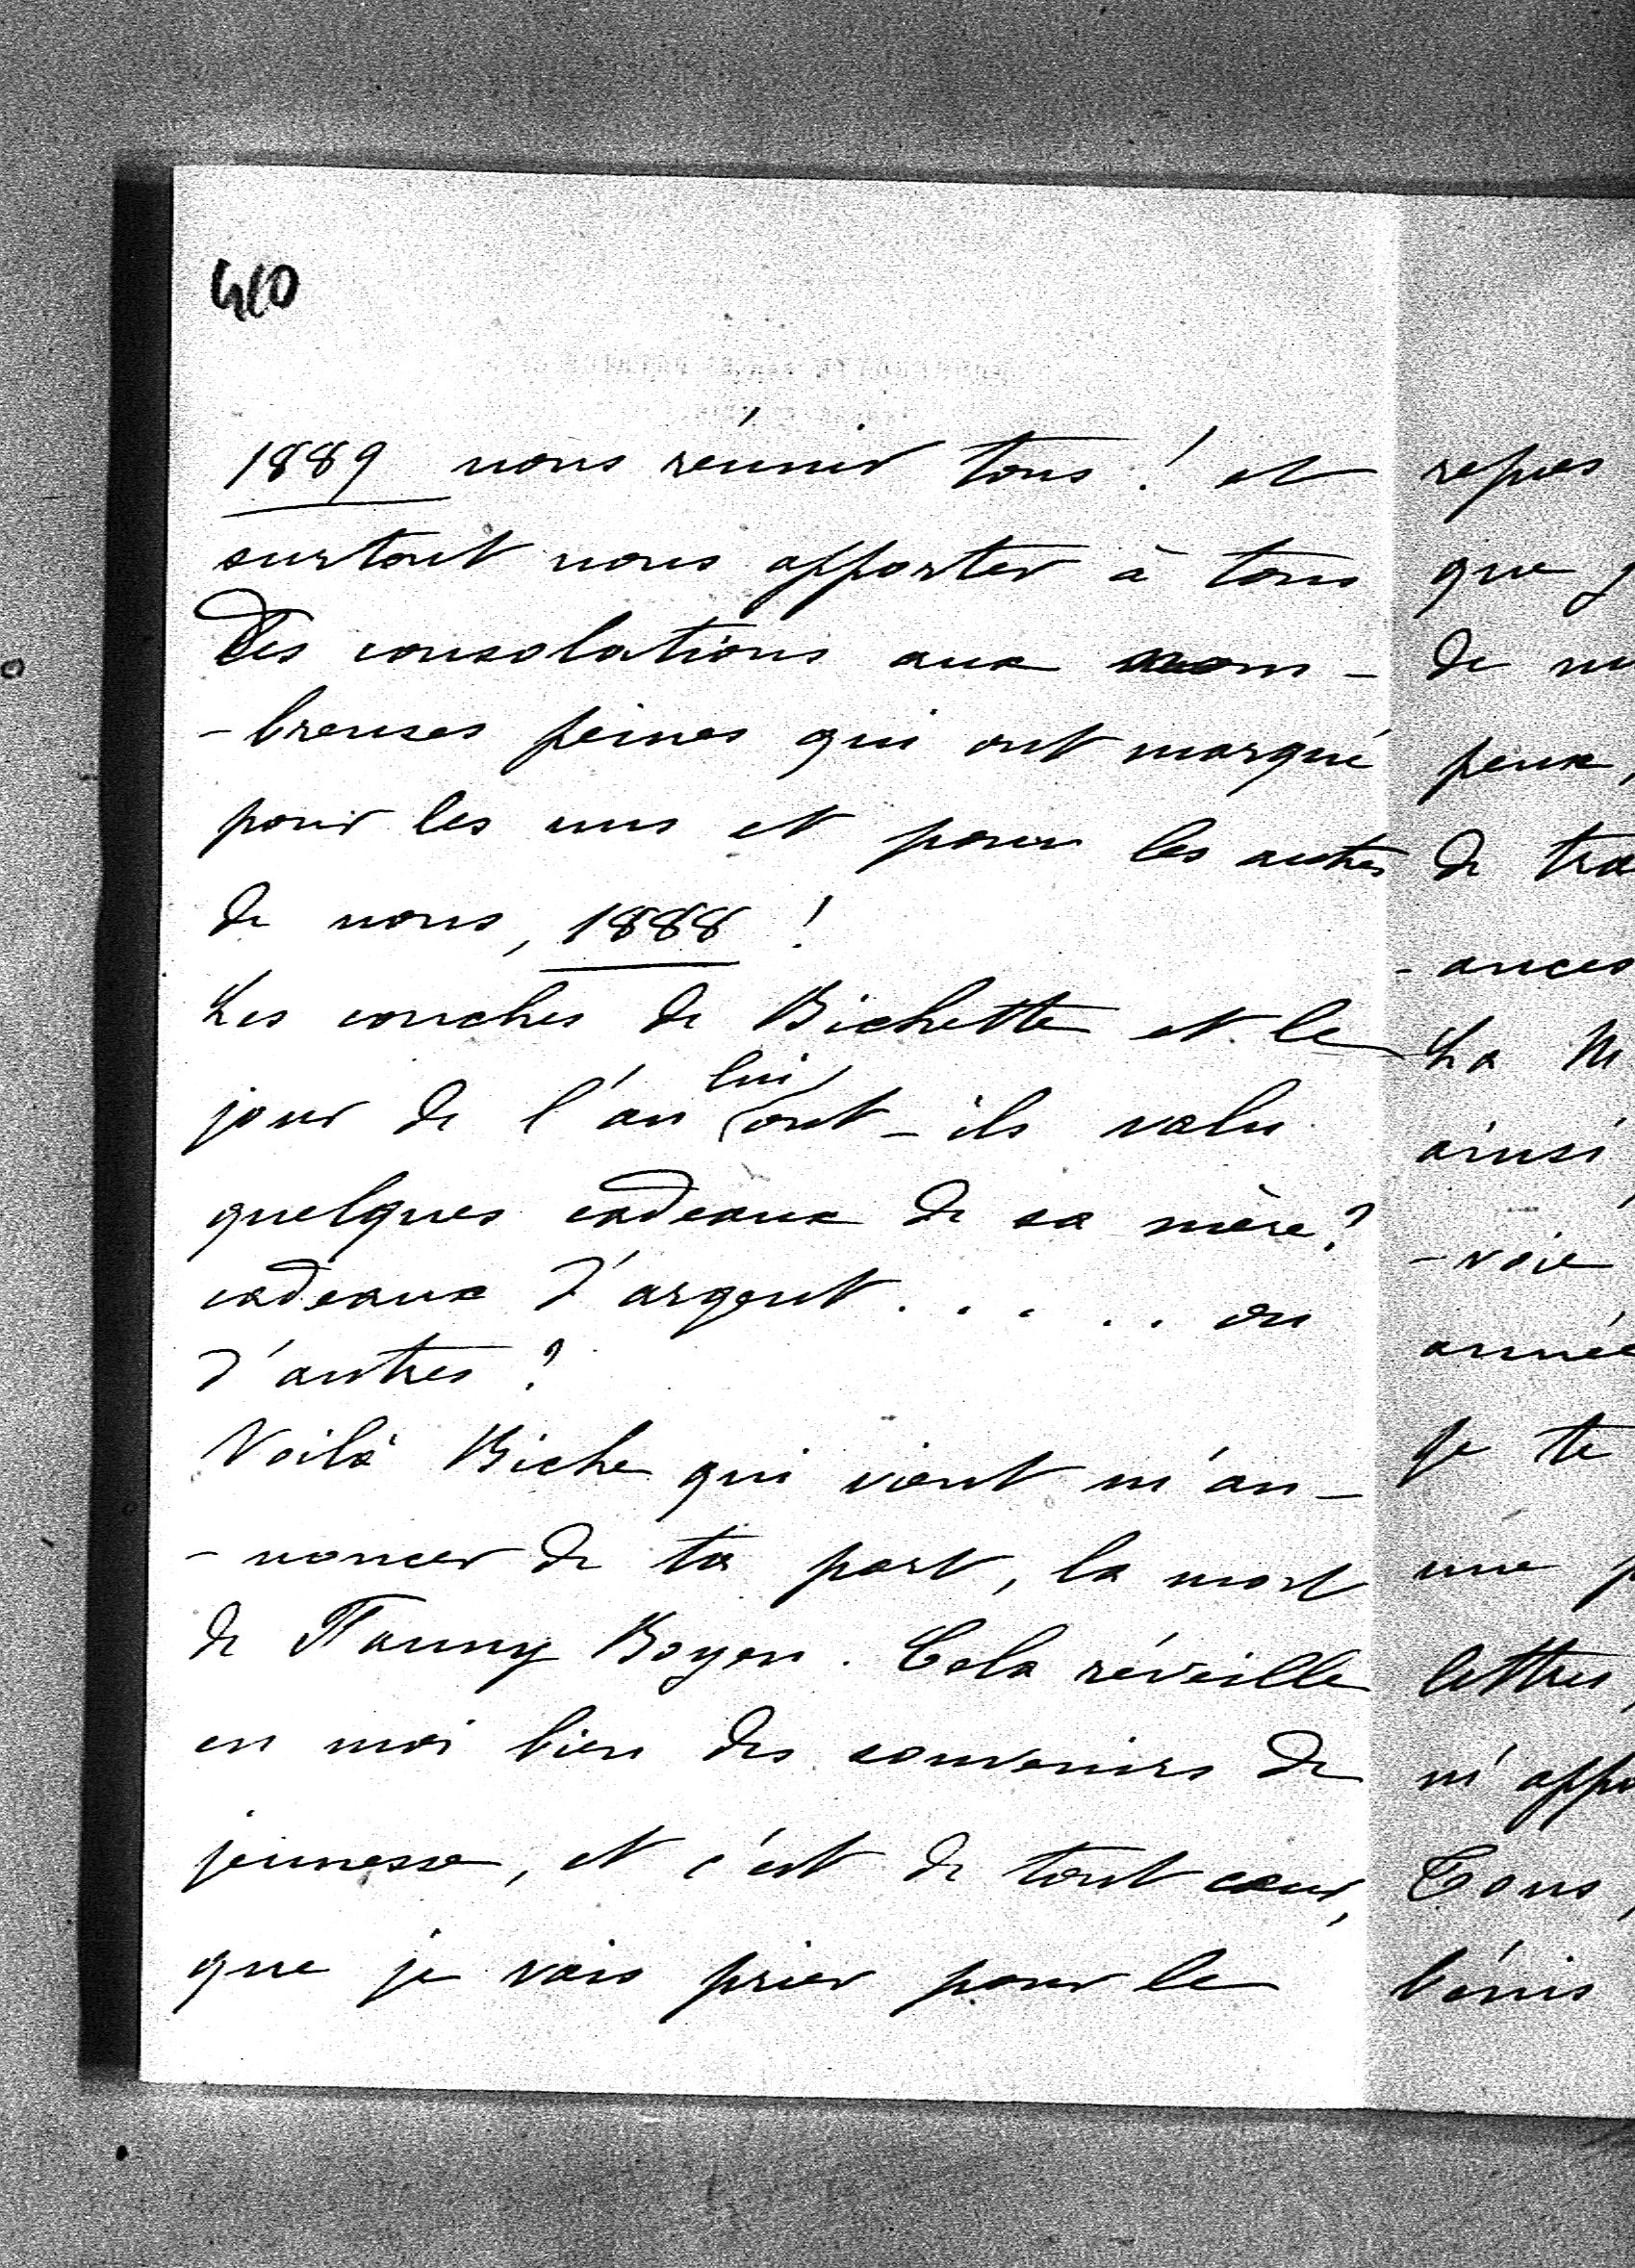 410
1889 nous réunir tous ! et
surtout nous apporter à tous
des consolations aux nom-
-breuses peines qui ont marqué
pour les uns et pour les autres
de nous, 1888 !
Les couches de Bichette et le
jour de l'an lui ont-ils valu
quelques cadeaux de sa mère?
cadeaux d'argent..... ou
d'autres ?
Voilà Biche qui vient m'an-
-noncer de ta part, la mort
de Fanny Boyen. Cela réveille
en moi bien des souvenirs de
jeunesse, et c'est de tout cœur,
que je vais prier pour le
repos
que j
de
peux,
de tra
-ances
La M
ainsi
-voie
année
je te
une p
lettres,
m'appo
Tous,
bénis